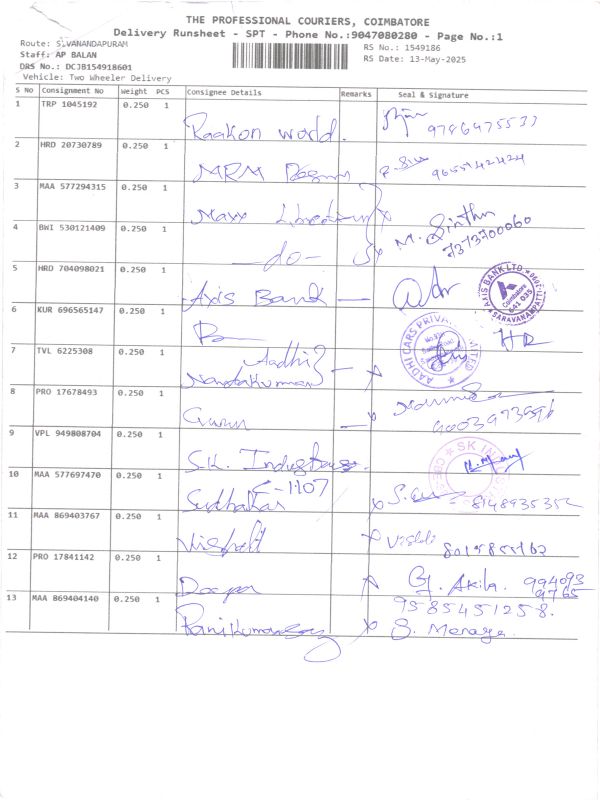 THE PROFESSIONAL COURIERS, COIMBATORE
Delivery Runsheet - SPT - Phone No.:9047080280 - Page No.:1
Route: SIVANANDAPURAM
Staff: AP BALAN
DRS No.: DCJB154918601
Vehicle: Two Wheeler Delivery
RS No.: 1549186
RS Date: 13-May-2025
S No Consignment No Weight PCS Consignee Details Remarks Seal & Signature
1 TRP 1045192 0.250 1 Raakon world. 9786975533
2 HRD 20730789 0.250 1 MRM 9655142424
3 MAA 577294315 0.250 1 Maxx
4 BWI 530121409 0.250 1 -do- M. Sinthu 7373700060
5 HRD 704098021 0.250 1 Axis Bank
AXIS BANK LTD Coimbatore 641 035 SARAVANAMPATTI
6 KUR 696565147 0.250 1 HR
AADHI CARS PRIVATE LIMITED
7 TVL 6225308 0.250 1 Aadhi Nandakumar
8 PRO 17678493 0.250 1 Gurun
9 VPL 949808704 0.250 1 S.K. Industries
SK
10 MAA 577697470 0.250 1 Sudhakar C-1107 8148935352
11 MAA 869403767 0.250 1
12 PRO 17841142 0.250 1 Deepa G. Akila. 994093 9765
13 MAA 869404140 0.250 1 9585451258. S. Menaga.